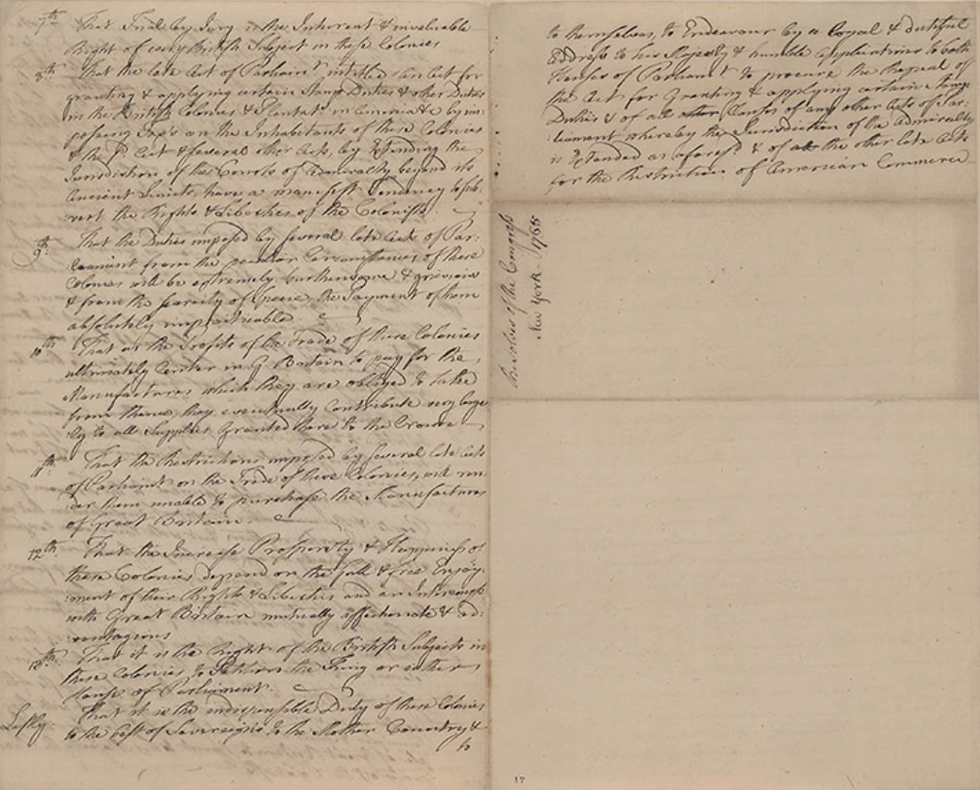 7th That Trial by Jury is the Inherent & invaluable
Right of every British Subject in these Colonies
8th That the late Act of Parliamt intitled an Act for
granting & applying certain Stamp Duties & other Duties
in the British Colonies & Plantats in America &c by im-
posing Taxes on the Inhabitants of these Colonies
& the sd Act & several other Acts, by Extending the
Jurisdiction of the Courts of Admiralty beyond its
Ancient Limits, have a manifest Tendency to sub-
vert the Rights & Liberties of the Colonists.
9th That the Duties imposed by several late Acts of Par-
leament from the peculiar Circumstances of these
Colonies will be extremely burthensome & grievious
& from the scarcity of Specie, the Payment of them
absolutely impracticable
10th That as the Profits of the Trade of these Colonies
ultimately Center in G. Britain to pay for the
Manufactures which they are obliged to take
from thence, they eventually Contribute very large
ly to all Supplies Granted there to the Crown
11th That the Restrictions imposed by several late Acts
of Parliamt on the Trade of these Colonies, will ren-
der them unable to purchase the Manufactures
of Great Britain
12th That the Increase Prosperity & Happiness of
these Colonies depend on the full & free Enjoy-
ment of their Rights & Liberties and an Intercourse
with Great Britain mutually affectionate & ad-
vantagious
13th That it is the Right of the British Subjects in
these Colonies to Petition the King or either
House of Parliament.
Lastly That it is the indispensible Duty of these Colonies
to the best of Sovereigns to the Mother Country &
to
to themselves, to Endeavour by a Loyal & dutifull
Address to his Majesty & humble applications to both
Houses of Parliamt to procure the Repeal of
the Act for Granting & applying certain Stamp
Duties & of all other Clauses of any other Acts of Par-
liament whereby the Jurisdiction of the Admiralty
is Extended as aforesd & of all the other late Acts
for the Restriction of American Commerce
Resolves of the Congress
New York 1765
17